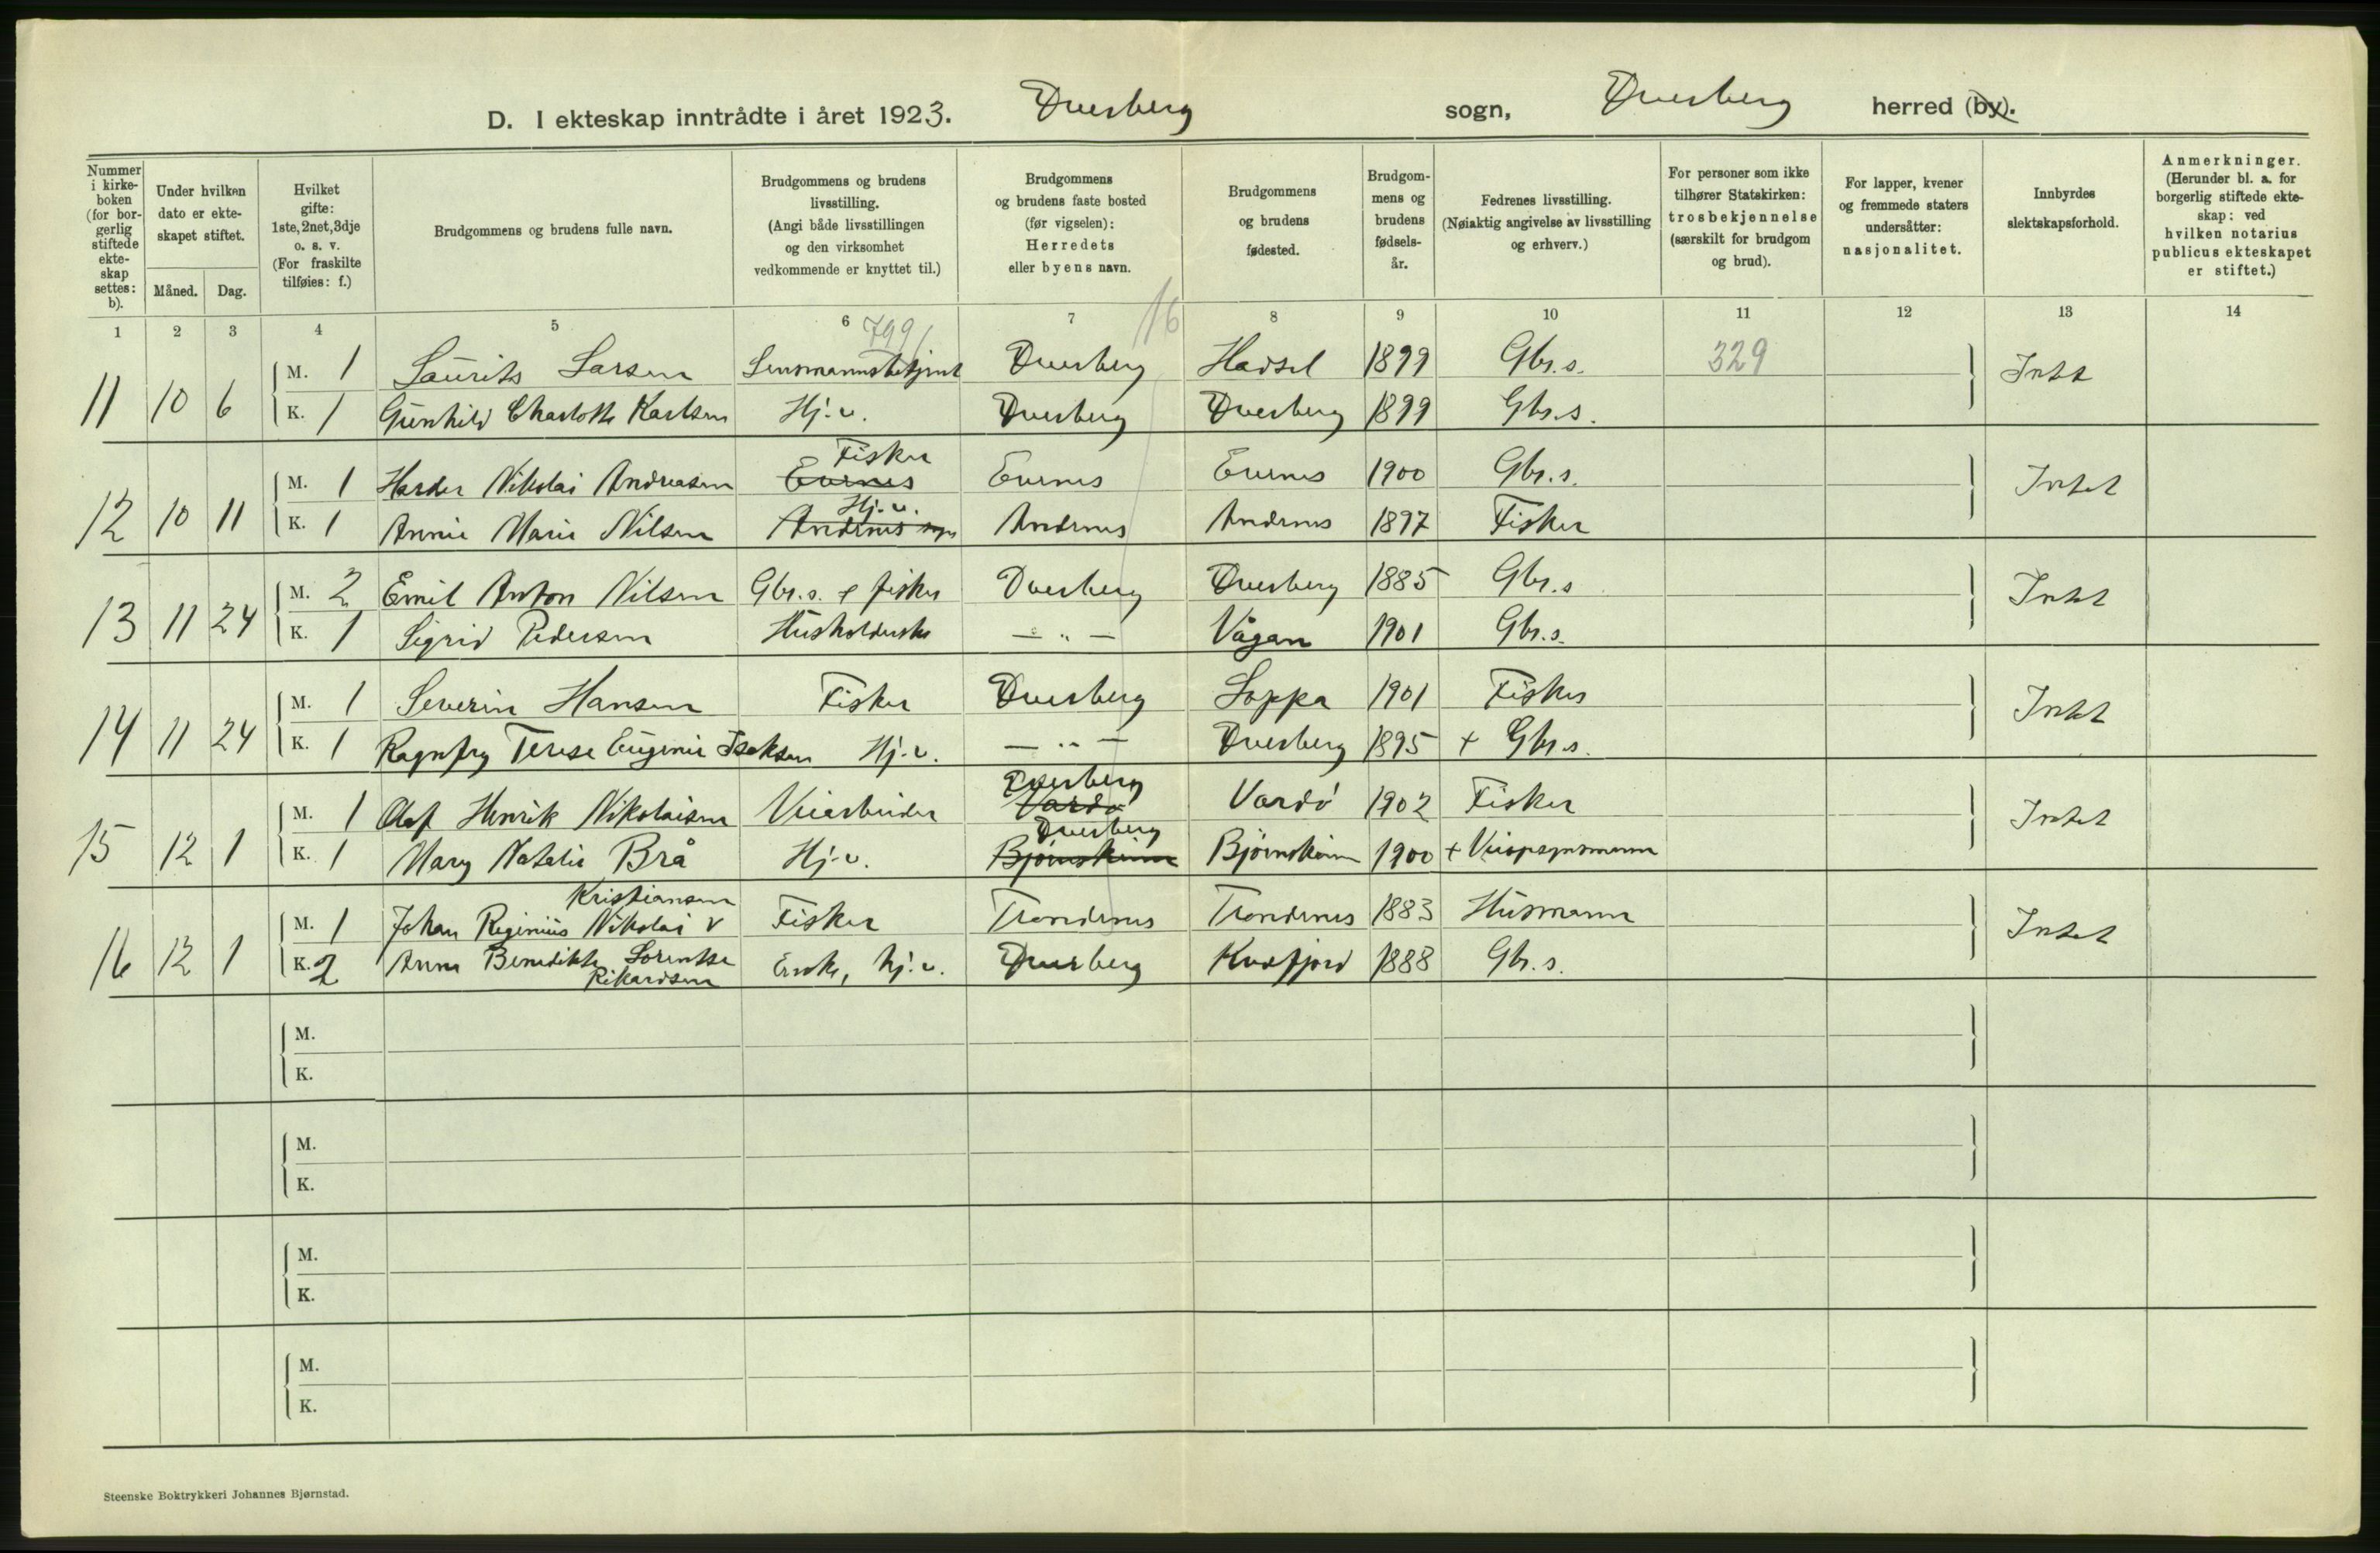 D. I ekteskap inntrådte i året 1923. Dverberg sogn, Dverberg herred (by).
Nummer i kirkeboken (for borgerlig stiftede ekteskap settes: b).
Under hvilken dato er ekteskapet stiftet.
Måned. Dag.
Hvilket gifte: 1ste, 2net, 3dje o. s. v. (For fraskilte tilføies: f.)
Brudgommens og brudens fulle navn.
Brudgommens og brudens livsstilling. (Angi både livsstillingen og den virksomhet vedkommende er knyttet til.)
Brudgommens og brudens faste bosted (før vigselen): Herredets eller byens navn.
Brudgommens og brudens fødested.
Brudgommens og brudens fødselsår.
Fedrenes livsstilling. (Nøiaktig angivelse av livsstilling og erhverv.)
For personer som ikke tilhører Statskirken: trosbekjennelse (særskilt for brudgom og brud).
For lapper, kvener og fremmede staters undersåtter: nasjonalitet.
Innbyrdes slektskapsforhold.
Anmerkninger. (Herunder bl. a. for borgerlig stiftede ekteskap: ved hvilken notarius publicus ekteskapet er stiftet.)
1 2 3 4 5 6 7 8 9 10 11 12 13 14
7991 16
11 10 6 M. 1 Laurits Larsen Lensmannsbetjent Dverberg Hadsel 1899 Gbr.s. 329 Intet
K. 1 Gunhild Charlotte Karlsen Hj.v. Dverberg Dverberg 1899 Gbr.s.
Fisker
12 10 11 M. 1 Harder Nikolai Andreasen Evenes Evenes Evenes 1900 Gbr.s. Intet
Hj.v.
K. 1 Annie Marie Nilsen Andenes sogn Andenes Andenes 1897 Fisker
13 11 24 M. 2 Emil Anton Nilsen Gbr.s. & fisker Dverberg Dverberg 1885 Gbr.s Intet
K. 1 Sigrid Pedersen Husholderske — „ — Vågan 1901 Gbr.s.
14 11 24 M. 1 Severin Hansen Fisker Dverberg Loppa 1901 Fisker Intet
K. 1 Ragnfry Terese Eugenie Isaksen Hj.v. — „ — Dverberg 1895 + Gbr.s.
Dverberg
15 12 1 M. 1 Olaf Henrik Nikolaisen Veiarbeider Vardø Vardø 1902 Fisker Intet
Dverberg
K. 1 Mary Natalie Brå Hj.v. Bjørnskinn Bjørnskinn 1900 + Veiopsynsmann
Kristiansen
16 12 1 M. 1 Johan Reginius Nikolai v Fisker Trondenes Trondenes 1883 Husmann Intet
K. 2 Anna Benedikte Lorentse Enke, hj.v. Dverberg Kvæfjord 1888 Gbr.s.
Rikardsen
M.
K.
M.
K.
M.
K.
M.
K.
Steenske Boktrykkeri Johannes Bjørnstad.